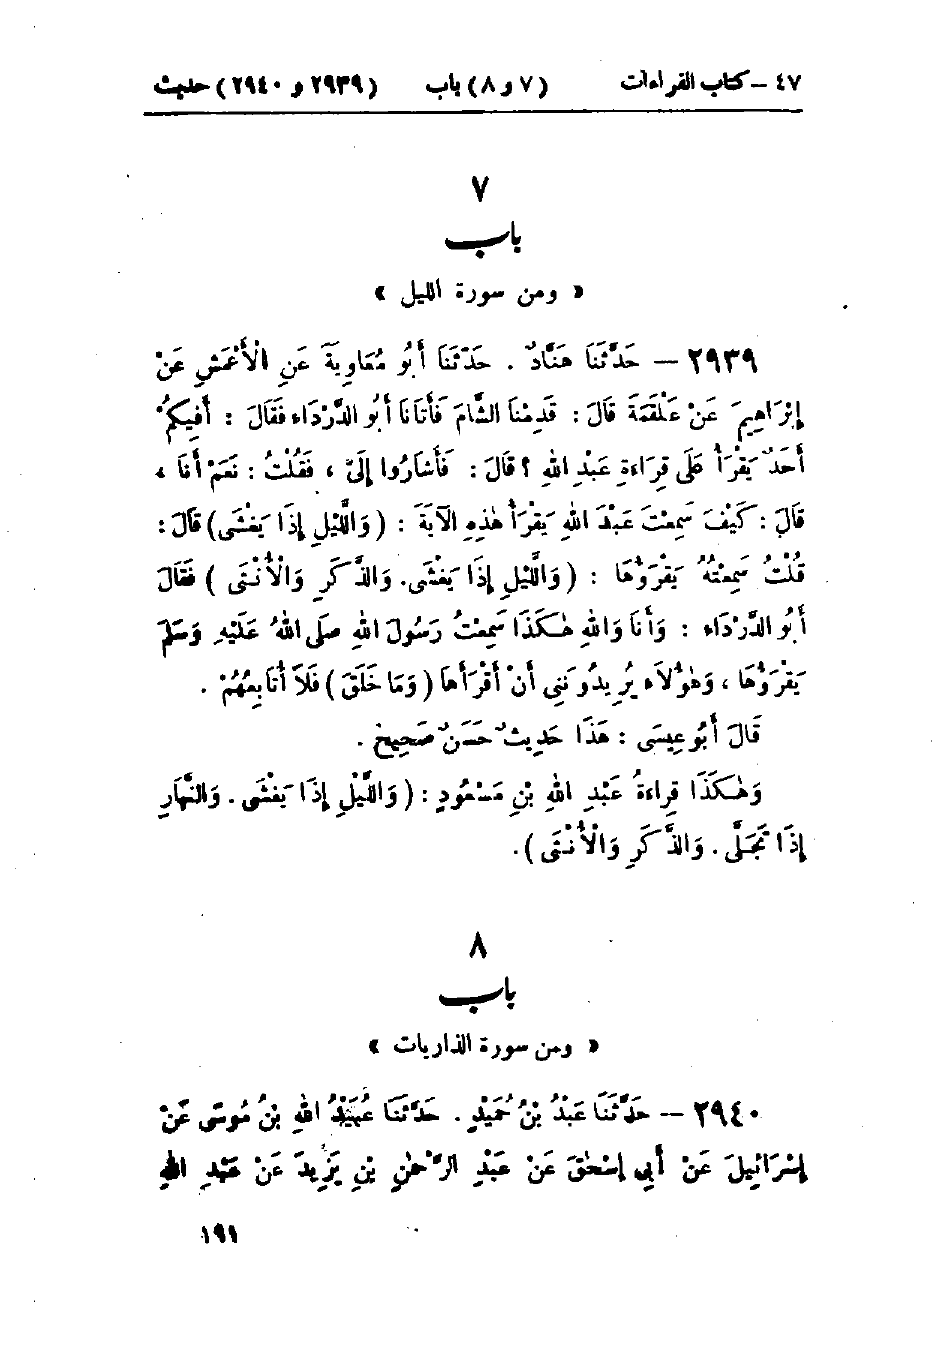 ٤٧ – كتاب القراءات (٧ و ٨) باب (٢٩٣٩ و ٢٩٤٠) حديث
٧
باب
« ومن سورة الليل »
٢٩٣٩ – حَدَّثَنَا هَنَّادٌ . حَدَّثَنَا أَبُو مُعَاوِيَةَ عَنِ الْأَعْمَشِ عَنْ
إِبْرَاهِيمَ عَنْ عَلْقَمَةَ قَالَ : قَدِمْنَا الشَّامَ فَأَتَانَا أَبُو الدَّرْدَاءِ فَقَالَ : أَفِيكُمْ
أَحَدٌ يَقْرَأُ عَلَى قِرَاءَةِ عَبْدِ اللهِ ؟ قَالَ : فَأَشَارُوا إِلَيَّ ، فَقُلْتُ : نَعَمْ أَنَا ،
قَالَ : كَيْفَ سَمِعْتَ عَبْدَ اللهِ يَقْرَأُ هٰذِهِ الآيَةَ : (وَاللَّيْلِ إِذَا يَغْشَى) قَالَ :
قُلْتُ سَمِعْتُهُ يَقْرَؤُهَا : (وَاللَّيْلِ إِذَا يَغْشَى. وَالذَّكَرِ وَالْأُنْثَى ) فَقَالَ
أَبُو الدَّرْدَاءِ : وَأَنَا وَاللهِ هٰكَذَا سَمِعْتُ رَسُولَ اللهِ صَلَّى اللهُ عَلَيْهِ وَسَلَّمَ
يَقْرَؤُهَا ، وَهٰؤُلَاءِ يُرِيدُونَنِي أَنْ أَقْرَأَهَا (وَمَا خَلَقَ) فَلَا أُتَابِعُهُمْ .
قَالَ أَبُو عِيسَى : هَذَا حَدِيثٌ حَسَنٌ صَحِيحٌ .
وَهٰكَذَا قِرَاءَةُ عَبْدِ اللهِ بْنِ مَسْعُودٍ : (وَاللَّيْلِ إِذَا يَغْشَى . وَالنَّهَارِ
إِذَا تَجَلَّى . وَالذَّكَرِ وَالْأُنْثَى ).
٨
باب
« ومن سورة الذاريات »
٢٩٤٠ – حَدَّثَنَا عَبْدُ بْنُ حُمَيْدٍ . حَدَّثَنَا عُبَيْدُ اللهِ بْنُ مُوسَى عَنْ
إِسْرَائِيلَ عَنْ أَبِي إِسْحٰقَ عَنْ عَبْدِ الرَّحْمٰنِ بْنِ يَزِيدَ عَنْ عَبْدِ اللهِ
١٩١